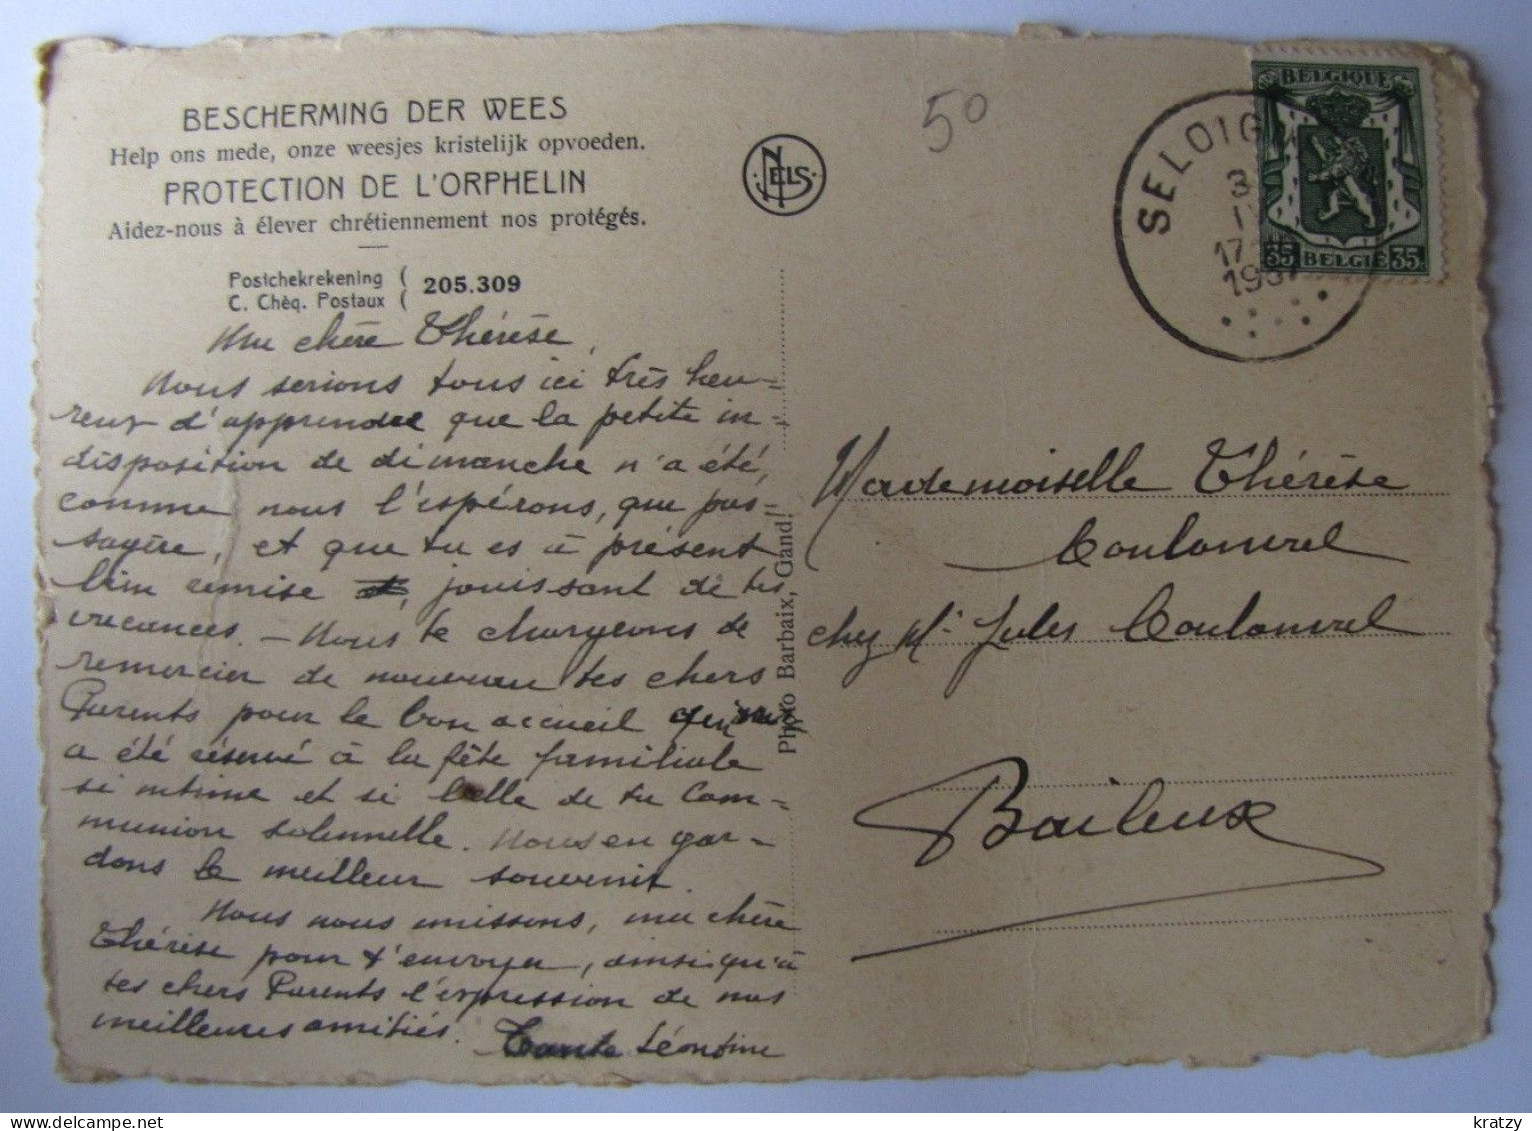 BESCHERMING DER WEES
Help ons mede, onze weesjes kristelijk opvoeden.
PROTECTION DE L'ORPHELIN
Aidez-nous à élever chrétiennement nos protégés.
Postchekrekening ( 205.309
C. Chèq. Postaux (
Ma chère Thérèse,
Nous serions tous ici très heu-
reux d'apprendre que la petite in-
disposition de dimanche n'a été,
comme nous l'espérons, que pas-
sagère, et que tu es à présent
bien remise, jouissant de tes
vacances. – Nous te chargeons de
remercier de nouveau tes chers
Parents pour le bon accueil qui nous
a été réservé à la fête familiale
si intime et si belle de ta Com-
munion solennelle. Nous en gar-
dons le meilleur souvenir.
Nous nous unissons, ma chère
Thérèse pour t'envoyer, ainsi qu'à
tes chers Parents l'expression de nos
meilleures amitiés. Tante Léontine
NELS
Photo Barbaix, Gand.
50
SELOIG
3
17
193
BELGIQUE
35 BELGIË 35
Mademoiselle Thérèse
Coulonval
chez Mr Jules Coulonval
Baileux
kratzy